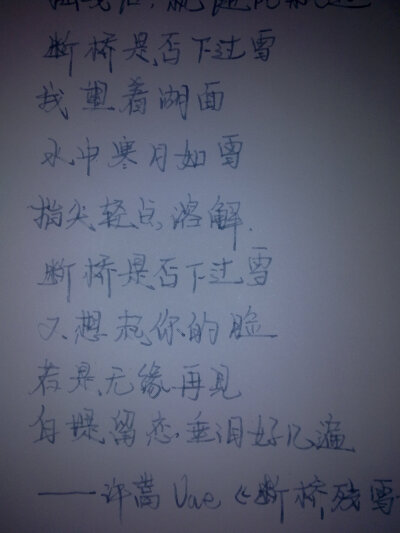 断桥是否下过雪
我望着湖面
水中寒月如雪
指尖轻点溶解
断桥是否下过雪
又想起你的脸
若是无缘再见
白堤留恋垂泪好几遍
——许嵩 Vae《断桥残雪